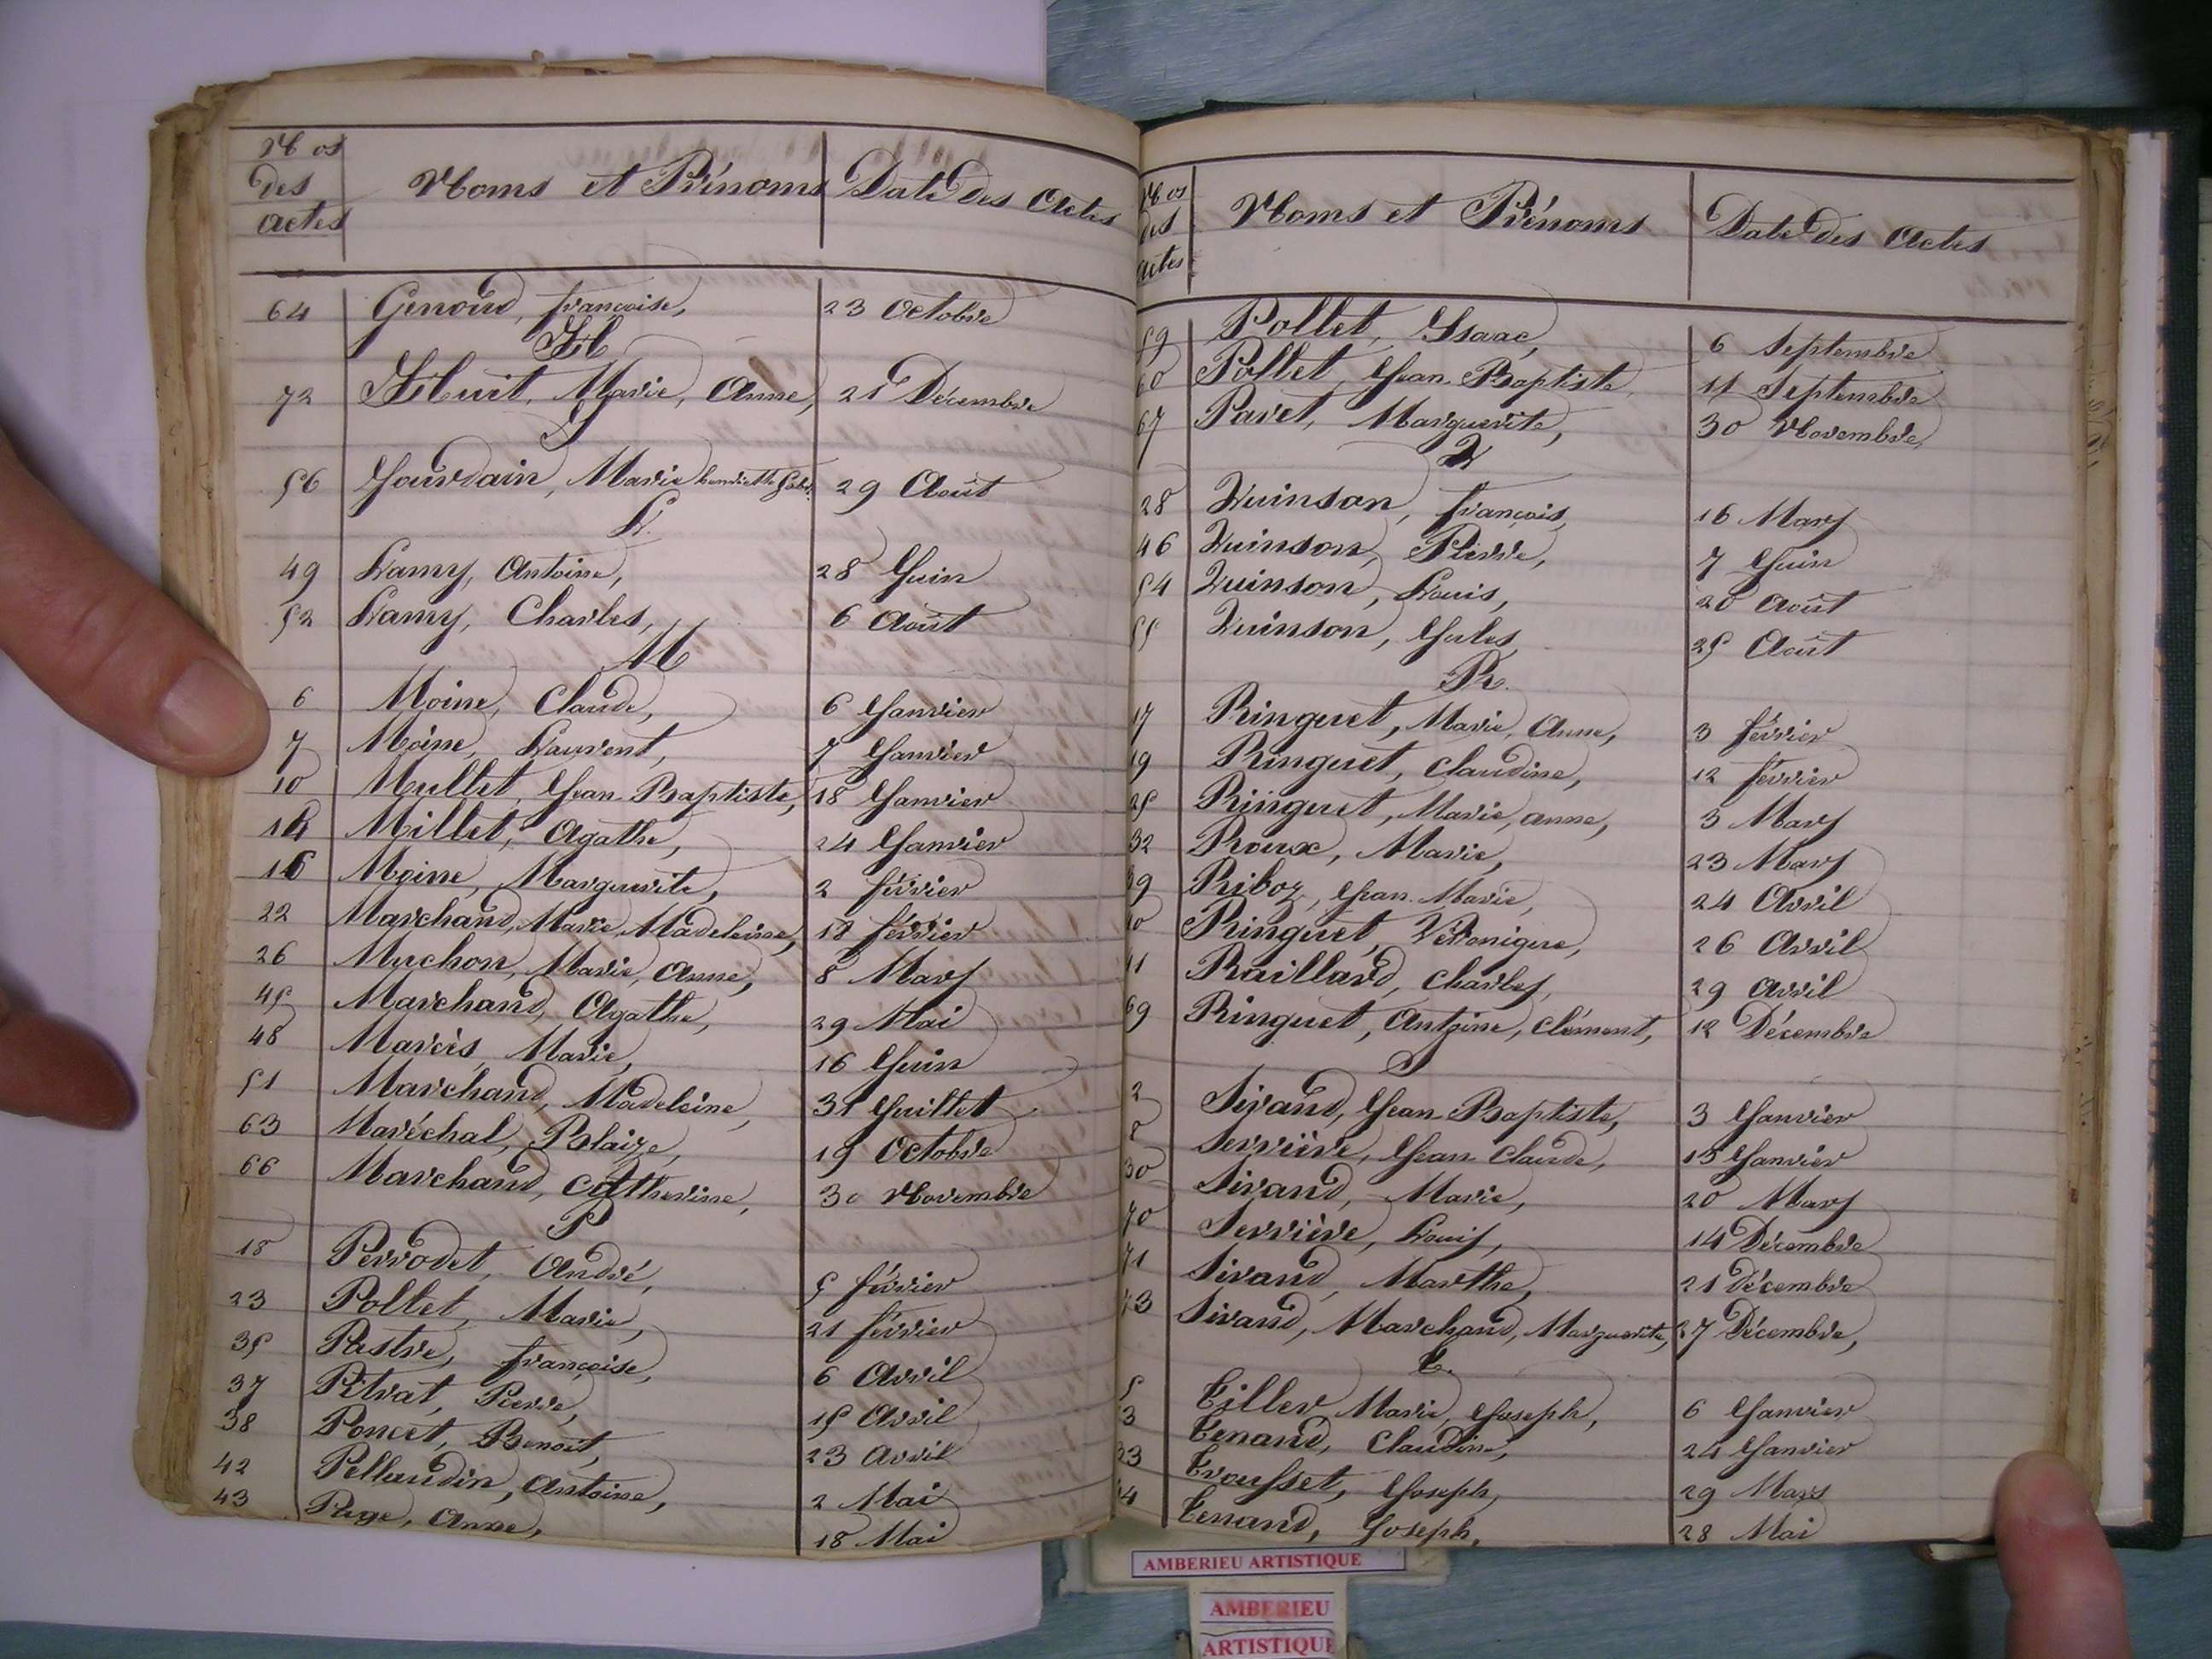 Nos des actes Noms et Prénoms Date des Actes
64 Genoud, françoise, 23 Octobre
H
72 Huit, Marie, Anne, 21 Décembre
J
56 Jourdain, Marie henriette 29 Août
L.
49 Lamy, Antoine, 28 Juin
52 Lamy, Charles, 6 Août
M
6 Moine, Claude, 6 Janvier
7 Moine, Laurent, 7 Janvier
10 Mullet, Jean Baptiste, 18 Janvier
14 Millet, Agathe, 24 Janvier
16 Moine, Marguerite, 2 février
22 Marchand, Marie Madeleine, 18 février
26 Muchon, Marie, Anne, 8 Mars
45 Marchand, Agathe, 29 Mai
48 Mavris, Marie, 16 Juin
51 Marchand, Madeleine, 31 Juillet
63 Maréchal, Blaize, 19 Octobre
66 Marchand, Catherine, 30 Novembre
P
18 Perrodet, André, 5 février
23 Pollet, Marie, 21 février
35 Pastre, françoise, 6 Avril
37 Pitrat, Pierre, 15 Avril
38 Poncet, Benoit, 23 Avril
42 Pellaudin, Antoine, 2 Mai
43 Page, Anne, 18 Mai
Nos des actes Noms et Prénoms Date des Actes
59 Pollet, Isaac, 6 Septembre
60 Pollet, Jean Baptiste, 11 Septembre
67 Pavet, Marguerite, 30 Novembre,
Q
28 Quinson, françois, 16 Mars
46 Quinson, Pierre, 7 Juin
54 Quinson, Louis, 20 Août
55 Quinson, Jules, 25 Août
R.
17 Ringuet, Marie, Anne, 3 février
19 Ringuet, Claudine, 12 février
25 Ringuet, Marie, anne, 3 Mars
32 Roux, Marie, 23 Mars
39 Riboz, Jean Marie, 24 Avril
40 Ringuet, Véronique, 26 Avril
41 Raillard, Charles, 29 Avril
69 Ringuet, Antoine, Clément, 12 Décembre
S
2 Sivand, Jean Baptiste, 3 Janvier
8 Serrière, Jean Claude, 15 Janvier
30 Sivand, Marie, 20 Mars
70 Serrière, Louis, 14 Décembre
71 Sivand, Marthe, 21 décembre
73 Sivand, Marchand, Marguerite, 27 Décembre,
T.
5 Tiller Marie, Joseph, 6 Janvier
3 Tenand, Claudine, 24 Janvier
23 Trousset, Joseph, 29 Mars
44 Tenand, Joseph, 28 Mai
AMBERIEU ARTISTIQUE
AMBERIEU
ARTISTIQUE